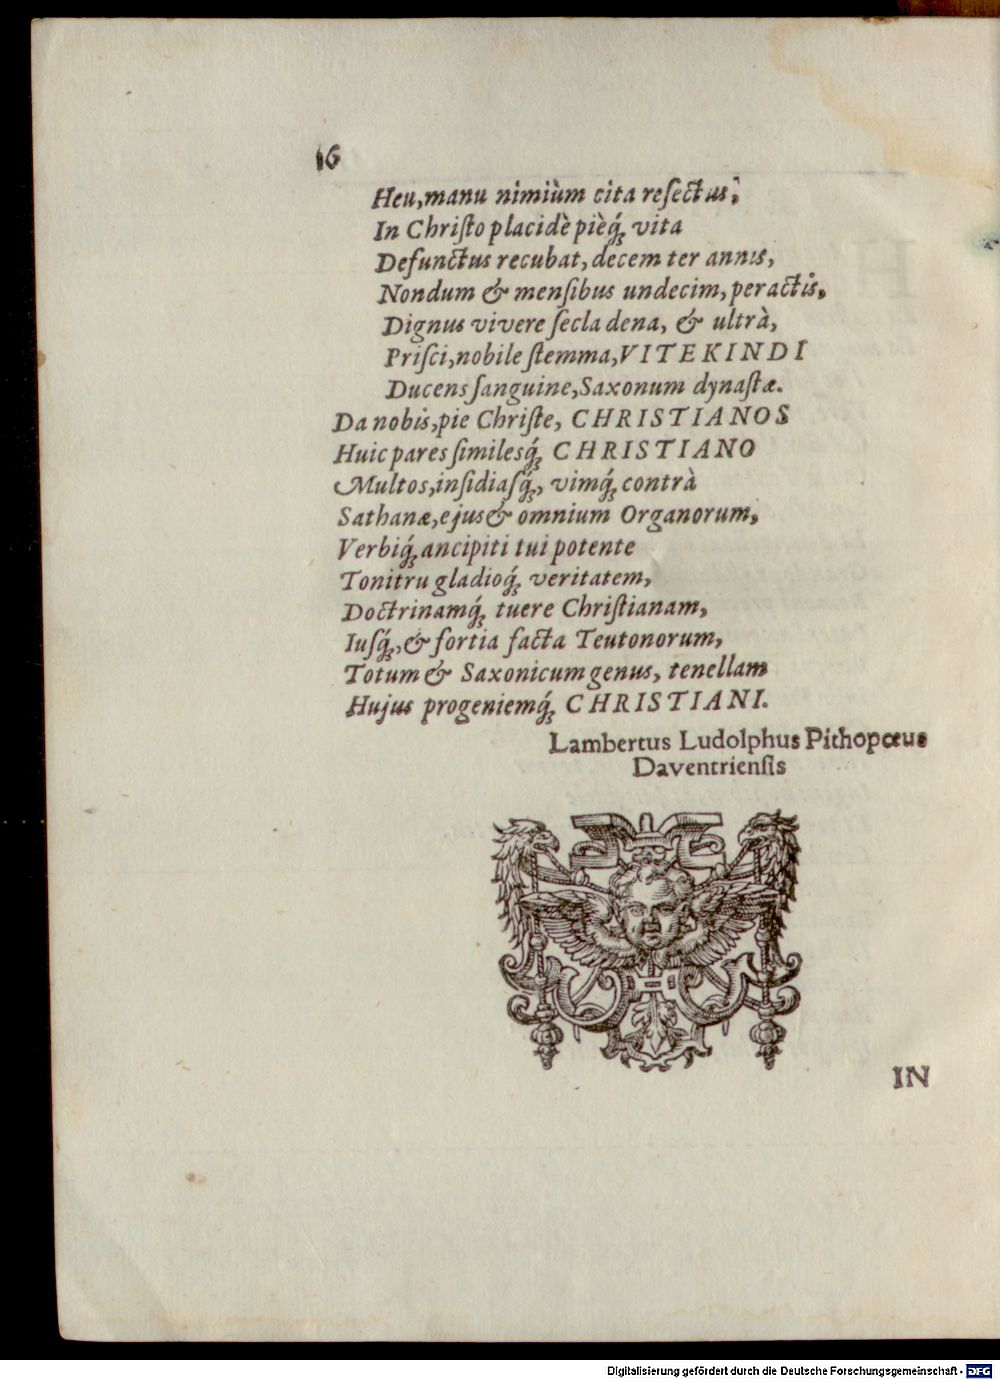 16
Heu, manu nimiùm cita reſectus,
In Chriſto placidè pièq́; vita
Defunctus recubat, decem ter annis,
Nondum & menſibus undecim, peractis,
Dignus vivere ſecla dena, & ultrà,
Priſci, nobile ſtemma, VITEKINDI
Ducens ſanguine, Saxonum dynaſtæ.
Da nobis, pie Chriſte, CHRISTIANOS
Huic pares ſimilesq́; CHRISTIANO
Multos, inſidiaſq́;, vimq́; contrà
Sathanæ, ejus & omnium Organorum,
Verbiq́; ancipiti tui potente
Tonitru gladioq́; veritatem,
Doctrinamq́; tuere Chriſtianam,
Iuſq́;, & fortia facta Teutonorum,
Totum & Saxonicum genus, tenellam
Hujus progeniemq́; CHRISTIANI.
Lambertus Ludolphus Pithopœus
Daventrienſis
IN
Digitalisierung gefördert durch die Deutsche Forschungsgemeinschaft - DFG